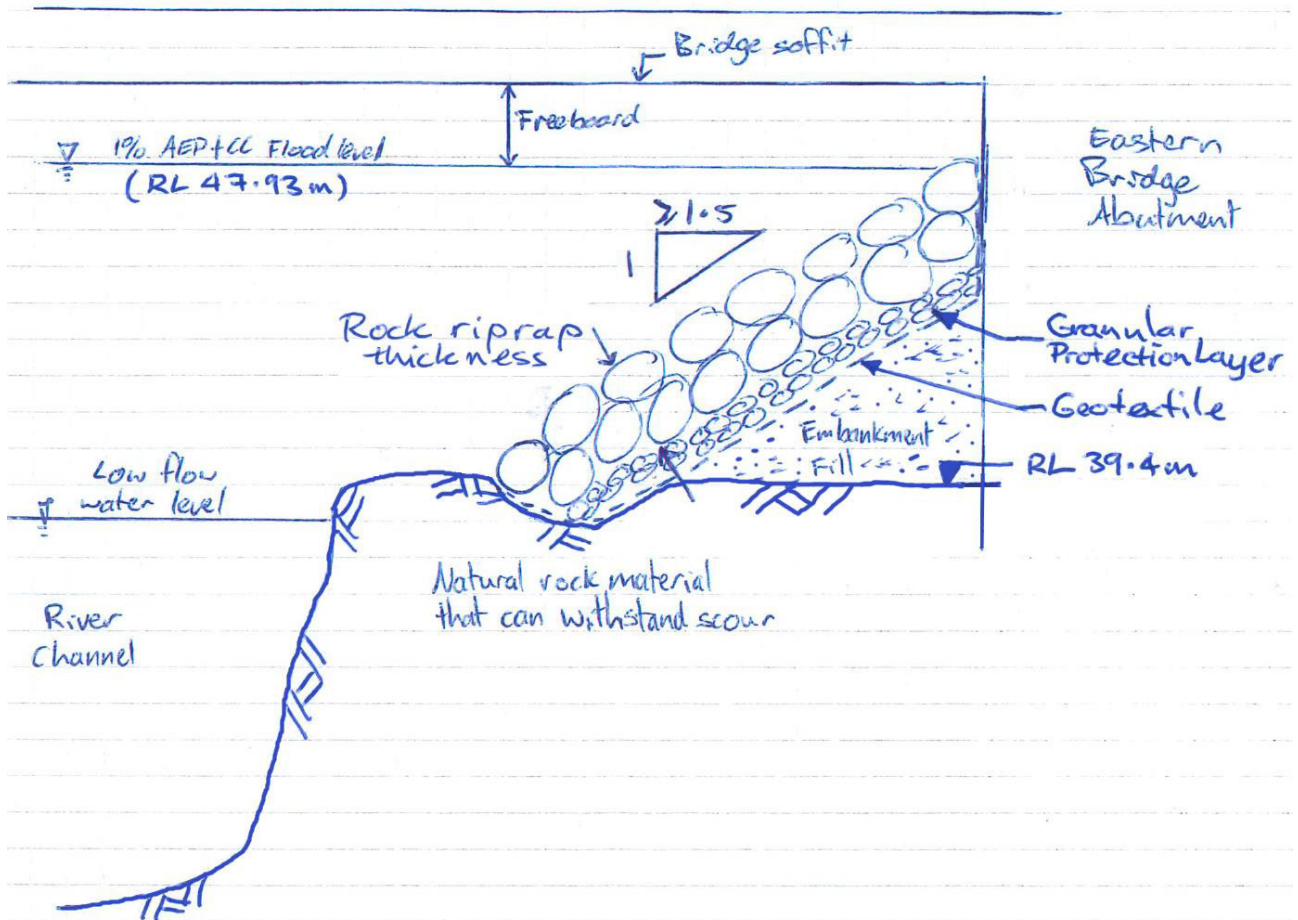 Bridge soffit
Freeboard
1% AEP+CC Flood level
(RL 47.93m)
Eastern
Bridge
Abutment
≥1.5
1
Rock riprap
thickness
Granular
Protection Layer
Geotextile
Embankment
Fill
RL 39.4m
Low flow
water level
Natural rock material
that can withstand scour
River
Channel